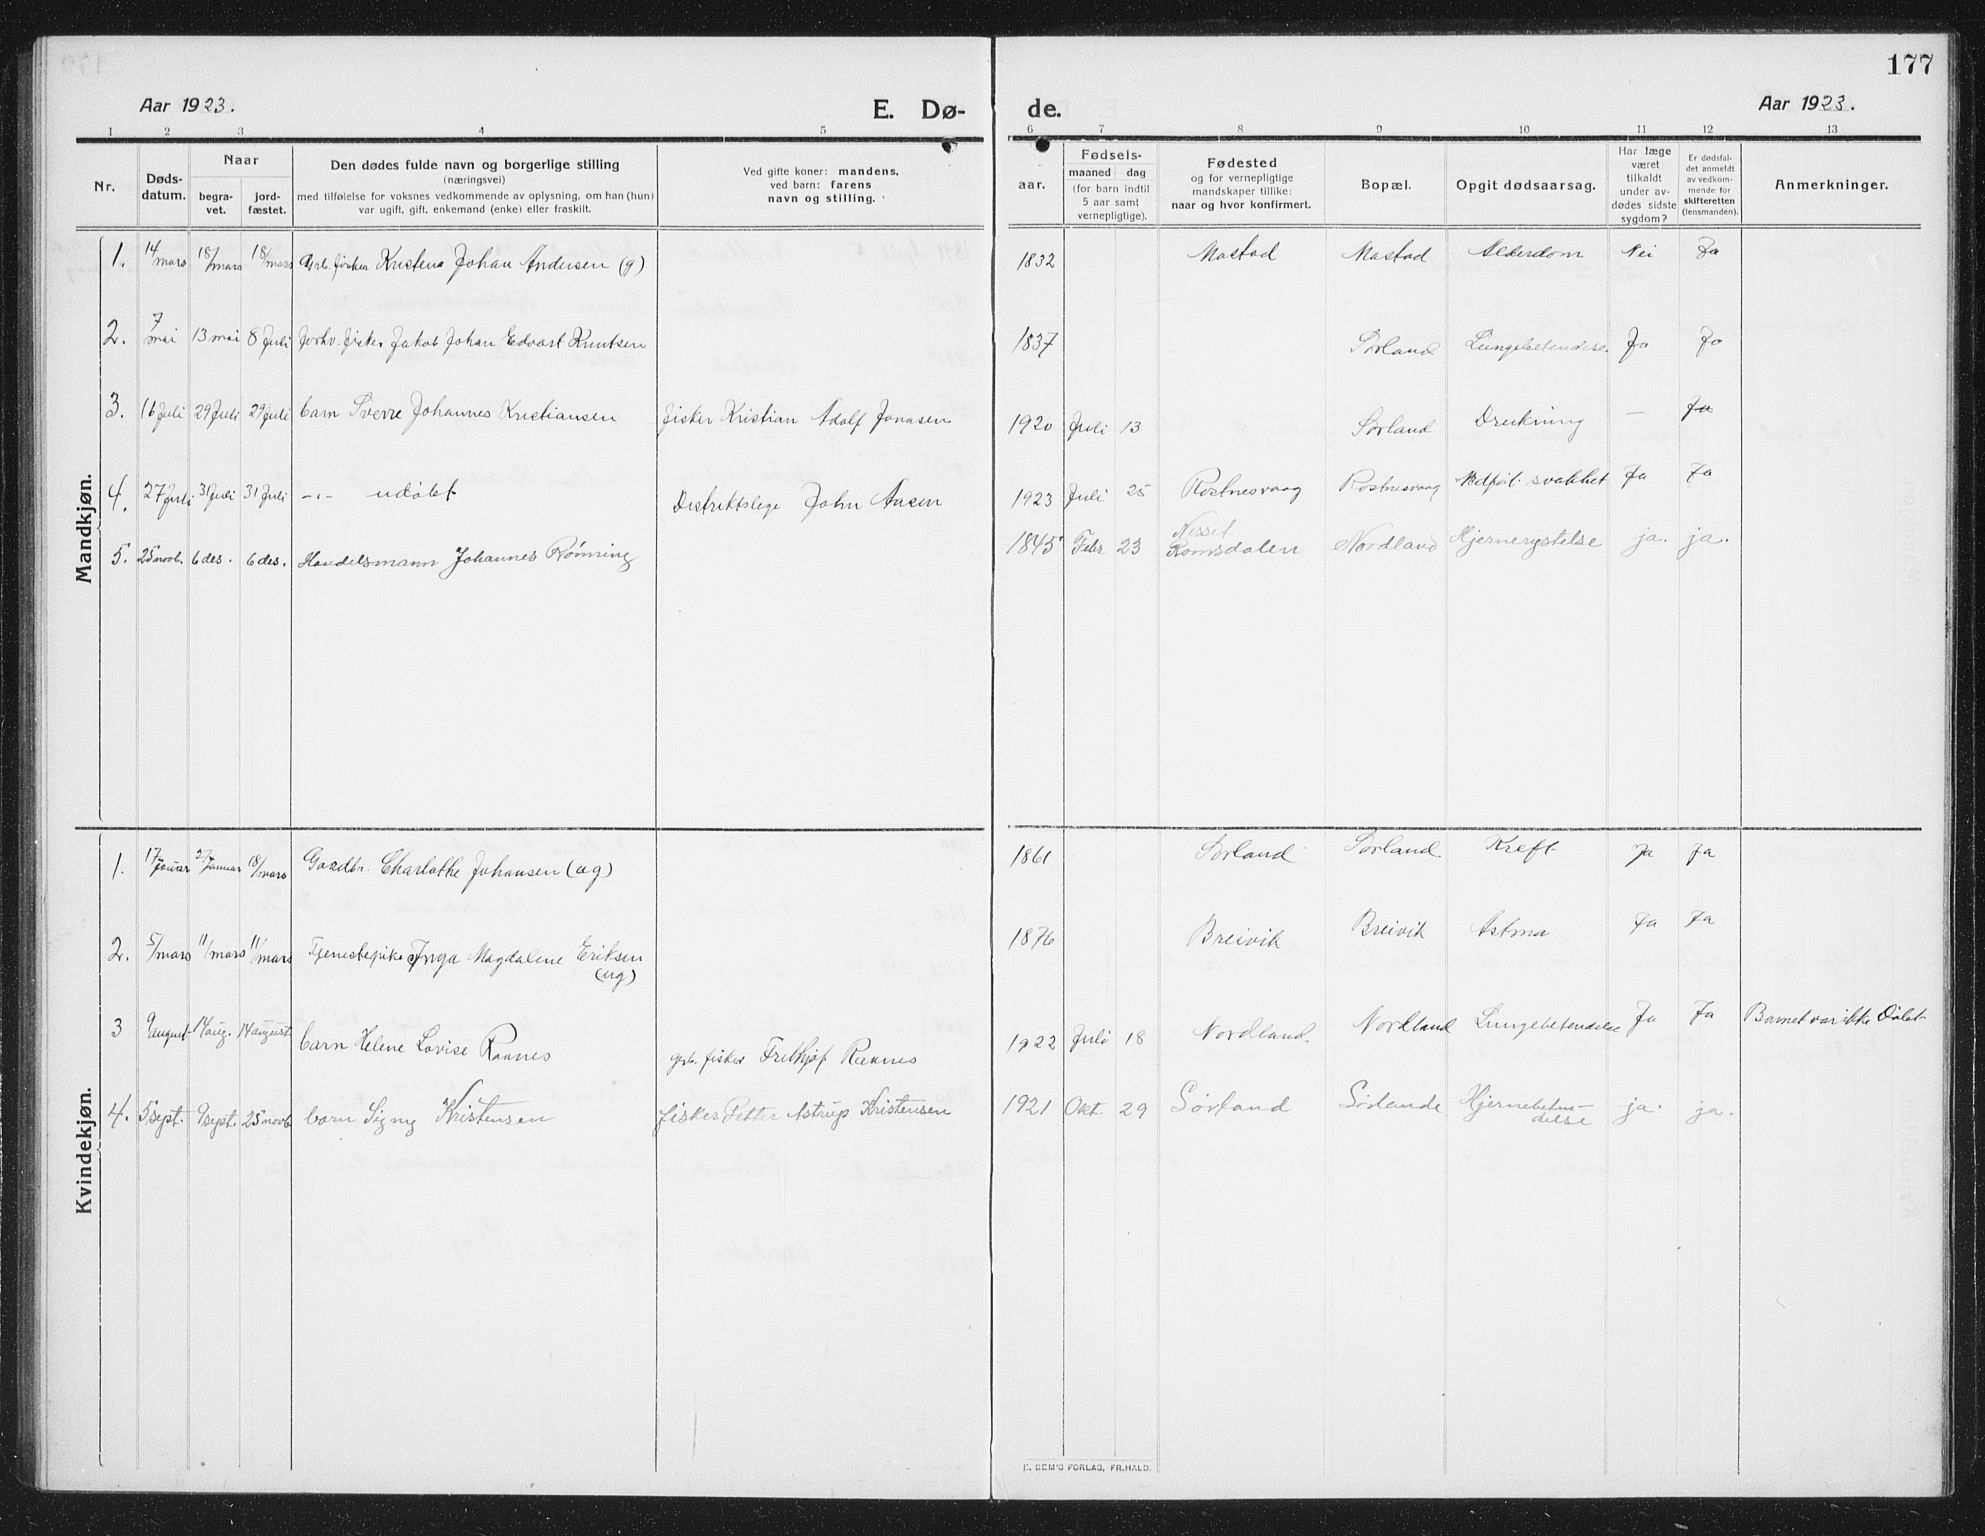 177
Aar 1923.
E. Dø-
de.
Aar 1923.
1 2 3 4 5 6 7 8 9 10 11 12 13
Nr.
Døds-
datum.
Naar
begra-
vet.
jord-
fæstet.
Den dødes fulde navn og borgerlige stilling
(næringsvei)
med tilføielse for voksnes vedkommende av oplysning, om han (hun)
var ugift, gift, enkemand (enke) eller fraskilt.
Ved gifte koner: mandens,
ved barn: farens
navn og stilling.
aar.
Fødsels-
maaned dag
(for barn indtil
5 aar samt
vernepligtige).
Fødested
og for vernepligtige
mandskaper tillike:
naar og hvor konfirmert.
Bopæl.
Opgit dødsaarsag.
Har læge
været
tilkaldt
under av-
dødes sidste
sygdom?
Er dødsfal-
det anmeldt
av vedkom-
mende for
skifteretten
(lensmanden).
Anmerkninger.
Mandkjøn.
1. 14/mars 18/mars 18/mars Grb. fisker Kristen Johan Andersen (g) 1832 Mastad Mastad Alderdom Nei Ja
2. 7 mai 13 mai 8 Juli Forhv. fisker Jakob Johan Edvart Knutsen 1837 Sørland Lungebetendelse Ja Ja
3. 16 Juli 29 Juli 29 Juli barn Sverre Johannes Kristiansen fisker Kristian Adolf Jonasen 1920 Juli 13 Sørland Drukning — Ja
4. 27 Juli 31 Juli 31 Juli -"- udøbt Distriktslege John Aasen 1923 Juli 25 Røstnesvaag Røstnesvaag Medføt svakhet Ja Ja
5. 25 novb. 6 des. 6 des. Handelsmann Johannes Rønning 1845 Febr 23 Nesset Romsdalen Nordland Hjernerystelse ja. ja.
Kvindekjøn.
1. 17 Januar 27 Januar 18/mars Gaardbr. Charlothe Johansen (ug) 1861 Sørland Sørland Kreft Ja Ja
2. 5/mars 11/mars 11/mars Tjenestepike Inga Magdalene Eriksen
(ug) 1876 Breivik Breivik Astma Ja Ja
3 9 august 14 aug. 14 august barn Helene Lovise Raanes grb. fisker Frithjof Raanes 1922 Juli 18 Nordland. Nordland Lungebetendelse Ja Ja Barnet var ikke Døbt
4. 5 sept. 9 sept. 25 novb barn Signy Kristensen fisker Petter Astrup Kristensen 1921 Okt. 29 Sørland Sørlande Hjernebeten-
delse ja. ja.
E. SEM'S FORLAG, FR.HALD.